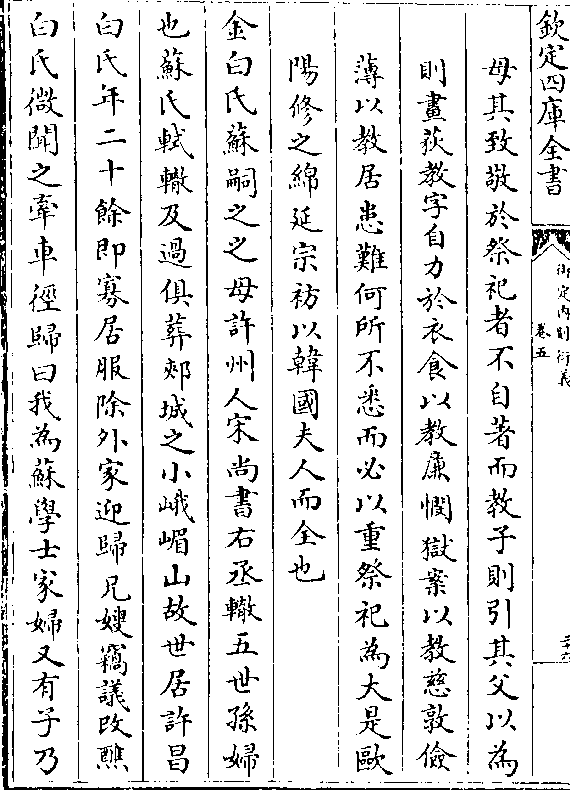 欽定四庫全書
御定內則衍義
卷五
二十六
母其致敬於祭祀者不自著而教子則引其父以為
則畫荻教字自力於衣食以教廉憫獄案以教慈敦儉
薄以教居患難何所不悉而必以重祭祀為大是歐
陽修之綿延宗祊以韓國夫人而全也
金白氏蘇嗣之之母許州人宋尚書右丞轍五世孫婦
也蘇氏軾轍及過俱葬郟城之小峨嵋山故世居許昌
白氏年二十餘即寡居服除外家迎歸兄嫂竊議改醮
白氏微聞之牽車徑歸曰我為蘇學士家婦又有子乃